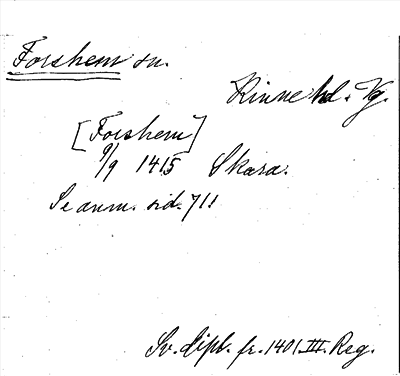 Forshem sn.
Kinne hd. Vg.
[Forshem]
9/9 1415 Skara.
Se anm. sid. 711
Sv. dipl. fr. 1401. III. Reg.